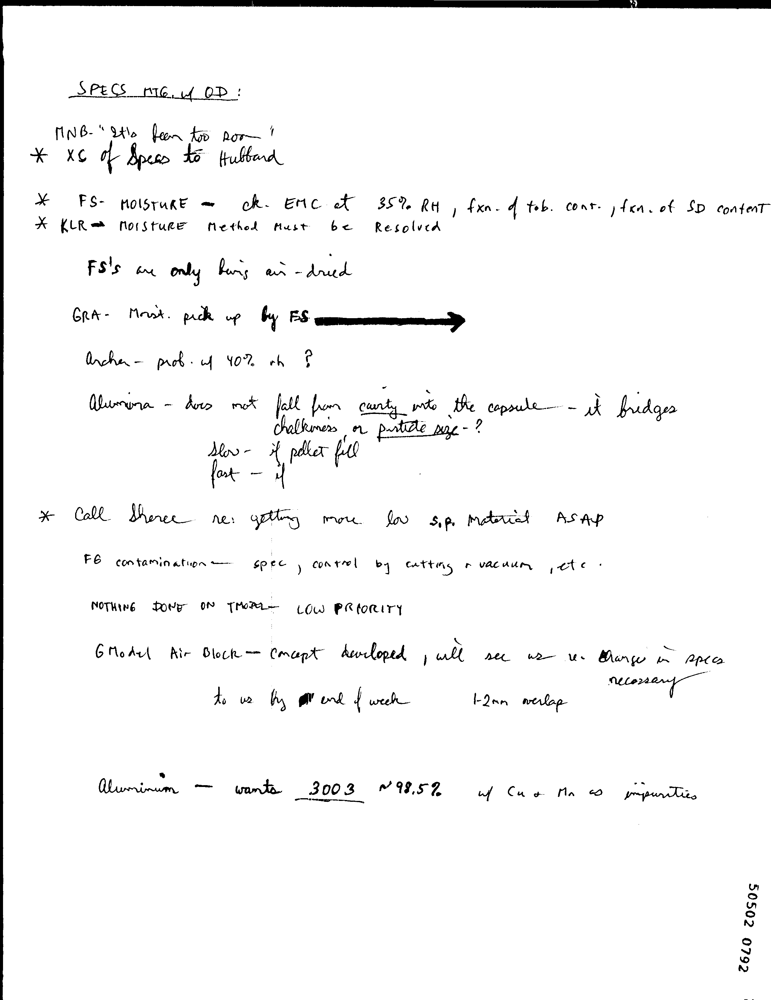 SPECS MTG. w/ OD :
MNB- "It's been too soon"
* XC of Specs to Hubbard
* FS- MOISTURE - ck. EMC at 35% RH , fxn. of tob. cont. , fxn. of SD content
* KLR - MOISTURE Method Must be Resolved
FS's are only being air-dried
GRA- Moist. pick up by FS
Archer - prob. w/ 40% rh ?
Alumina - does not fall from cavity into the capsule - it bridges
chalkiness, or particle size - ?
slow - if pellet fill
fast - if
* Call Sheree re: getting more low s.p. Material ASAP
FG contamination - spec , control by cutting & vacuum , etc .
NOTHING DONE ON TMODEL - LOW PRIORITY
G Model Air Block - concept developed , will see us re. change in specs
necessary
to us by end of week 1-2mm overlap
Aluminum - wants 3003 ~98.5% w/ Cu & Mn as impurities
50502 0792